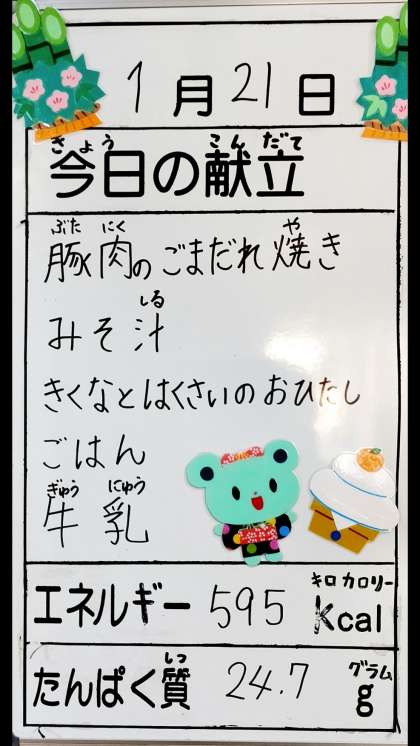 1月21日
きょう こんだて
今日の献立
ぶた にく や
豚肉のごまだれ焼き
しる
みそ汁
きくなとはくさいのおひたし
ごはん
ぎゅう にゅう
牛乳
キロカロリー
エネルギー 595 kcal
しつ グラム
たんぱく質 24.7 g